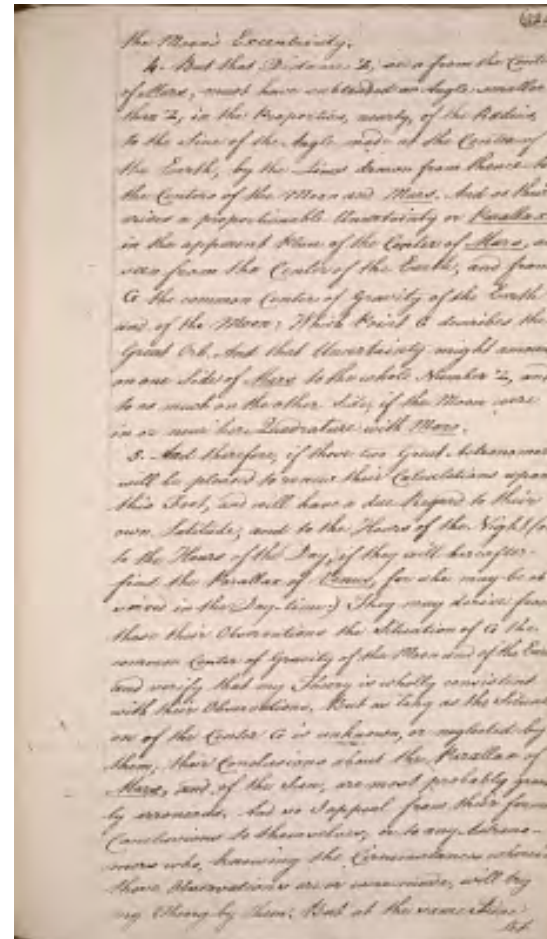 624
the Moon's Excentricity.
4. But that Distance Z, as a from the Cente
of Mars, must have subtended an Angle smaller
than Z, in the Proportion, nearly, of the Radius
to the Sine of the Angle made at the Center of
the Earth, by the Lines drawn from thence to
the Centers of the Moon and Mars. And so their
arises a proportionable Uncertainty or Parallax
in the apparent Place of the Center of Mars, as
seen from the Center of the Earth, and from
G the common Center of Gravity of the Earth
and of the Moon: Which Point G describes the
Great Orb. And that Uncertainty might amoun
on one Side of Mars to the whole Number Z, and
to as much on the other Side, if the Moon were
in or near her Quadrature with Mars.
5. And therefore, if those two Great Astronomer
will be pleased to renew their Calculations upon
this Foot, and will have a due Regard to their
own Latitude, and to the Hours of the Night (or
to the Hours of the Day, if they will hereafter
find the Parallax of Venus, for she may be ob
in the Day-time:) They may derive from
those their Observations the Situation of G the
common Center of Gravity of the Moon and of the Eart
and verify that my Theory is wholly consistent
with their Observations. But as long as the Situati
on of the Center G is unknown, or neglected by
them, their Conclusions about the Parallax of
Mars, and of the Sun, are most probably gross
ly erroneous. And so I appeal from their form
Conclusions to themselves, or to any Astrono-
mers who, knowing the Circumstances wherein
those Observations are or were made, will try
my Theory by them. But at the same Time